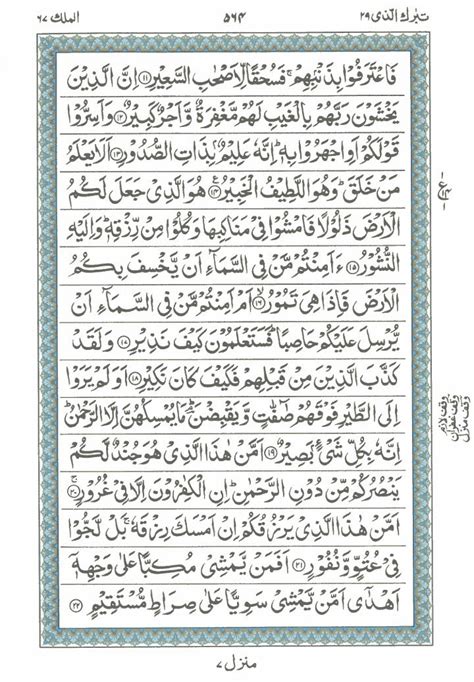 تبٰرك الذی ۲۹ ۵۶۴ الملك ۶۷
فَاعْتَرَفُوْا بِذَنْۢبِهِمْ ۚ فَسُحْقًا لِّاَصْحٰبِ السَّعِیْرِ ﴿۱۱﴾ اِنَّ الَّذِیْنَ
یَخْشَوْنَ رَبَّهُمْ بِالْغَیْبِ لَهُمْ مَّغْفِرَةٌ وَّاَجْرٌ كَبِیْرٌ ﴿۱۲﴾ وَاَسِرُّوْا
قَوْلَكُمْ اَوِ اجْهَرُوْا بِهٖ ؕ اِنَّهٗ عَلِیْمٌۢ بِذَاتِ الصُّدُوْرِ ﴿۱۳﴾ اَلَا یَعْلَمُ
مَنْ خَلَقَ ؕ وَهُوَ اللَّطِیْفُ الْخَبِیْرُ ﴿۱۴﴾ هُوَ الَّذِیْ جَعَلَ لَكُمُ
الْاَرْضَ ذَلُوْلًا فَامْشُوْا فِیْ مَنَاكِبِهَا وَكُلُوْا مِنْ رِّزْقِهٖ ؕ وَاِلَیْهِ
النُّشُوْرُ ﴿۱۵﴾ ءَاَمِنْتُمْ مَّنْ فِی السَّمَآءِ اَنْ یَّخْسِفَ بِكُمُ
الْاَرْضَ فَاِذَا هِیَ تَمُوْرُ ﴿۱۶﴾ اَمْ اَمِنْتُمْ مَّنْ فِی السَّمَآءِ اَنْ
یُّرْسِلَ عَلَیْكُمْ حَاصِبًا ؕ فَسَتَعْلَمُوْنَ كَیْفَ نَذِیْرِ ﴿۱۷﴾ وَلَقَدْ
كَذَّبَ الَّذِیْنَ مِنْ قَبْلِهِمْ فَكَیْفَ كَانَ نَكِیْرِ ﴿۱۸﴾ اَوَلَمْ یَرَوْا
اِلَی الطَّیْرِ فَوْقَهُمْ صٰٓفّٰتٍ وَّیَقْبِضْنَ ؔۘ مَا یُمْسِكُهُنَّ اِلَّا الرَّحْمٰنُ ؕ
اِنَّهٗ بِكُلِّ شَیْءٍۭ بَصِیْرٌ ﴿۱۹﴾ اَمَّنْ هٰذَا الَّذِیْ هُوَ جُنْدٌ لَّكُمْ
یَنْصُرُكُمْ مِّنْ دُوْنِ الرَّحْمٰنِ ؕ اِنِ الْكٰفِرُوْنَ اِلَّا فِیْ غُرُوْرٍ ﴿۲۰﴾
اَمَّنْ هٰذَا الَّذِیْ یَرْزُقُكُمْ اِنْ اَمْسَكَ رِزْقَهٗ ۚ بَلْ لَّجُّوْا
فِیْ عُتُوٍّ وَّنُفُوْرٍ ﴿۲۱﴾ اَفَمَنْ یَّمْشِیْ مُكِبًّا عَلٰی وَجْهِهٖۤ
اَهْدٰۤی اَمَّنْ یَّمْشِیْ سَوِیًّا عَلٰی صِرَاطٍ مُّسْتَقِیْمٍ ﴿۲۲﴾
منزل ۷